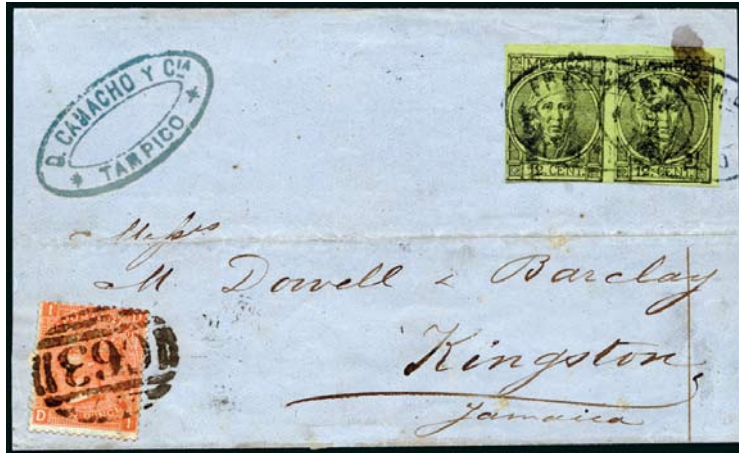 D. CAMACHO Y CIA
TAMPICO
MEXICO
12 CENT. 12 CENT.
Messrs
M. Dowell & Barclay
Kingston,
Jamaica
C63
I
D I